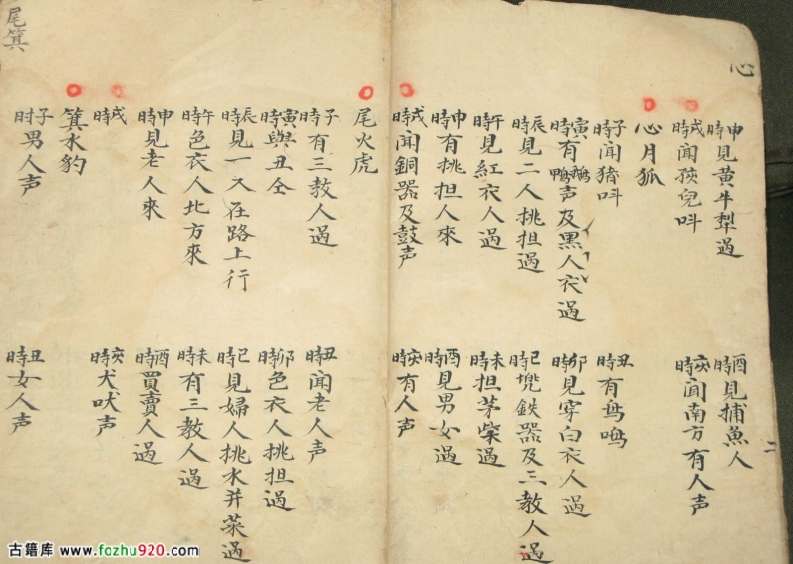 心
申時見黃牛犁過
酉時見捕魚人
戌時聞孩兒叫
亥時聞南方有人声
心月狐
子時聞猪叫
丑時有鸟鳴
寅時有鵝鴨声及黑人衣过
卯時見穿白衣人過
辰時見二人挑担過
巳時 鉄器及三教人過
午時見紅衣人過
未時担茅柴過
申時有挑担人來
酉時見男女過
戌時聞銅器及鼓声
亥時有人声
二
尾箕
尾火虎
子時有三教人過
丑時聞老人声
寅時與丑仝
卯時色衣人挑担過
辰時見一人在路上行
巳時見婦人挑水并菜過
午時色衣人北方來
未時有三教人過
申時見老人來
酉時買賣人過
戌時
亥時犬吠声
箕水豹
子時男人声
丑時女人声
古籍库 www.fozhu920.com